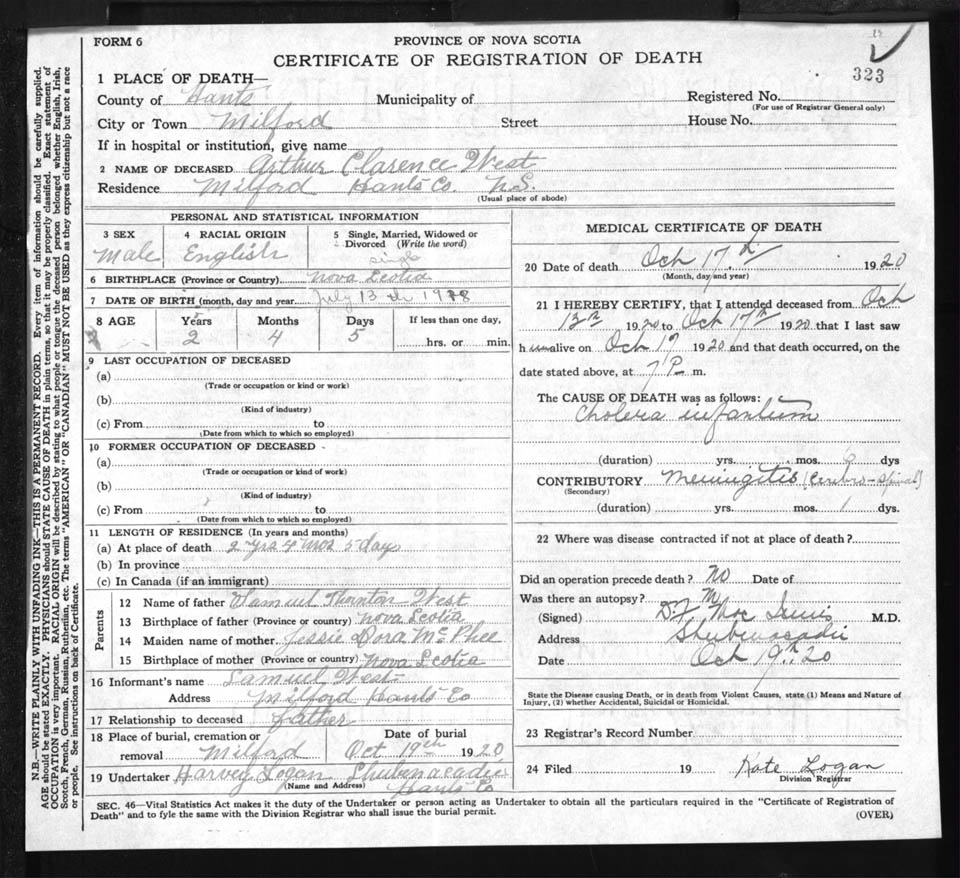 FORM 6
PROVINCE OF NOVA SCOTIA
CERTIFICATE OF REGISTRATION OF DEATH
323
1 PLACE OF DEATH—
County of Hants Municipality of Registered No.
(For use of Registrar General only)
City or Town Milford Street House No.
If in hospital or institution, give name
2 NAME OF DECEASED Arthur Clarence West
Residence Milford Hants Co. N.S.
(Usual place of abode)
PERSONAL AND STATISTICAL INFORMATION
3 SEX 4 RACIAL ORIGIN 5 Single, Married, Widowed or Divorced (Write the word)
Male English single
6 BIRTHPLACE (Province or Country) Nova Scotia
7 DATE OF BIRTH (month, day and year) July 13th 1918
8 AGE Years Months Days If less than one day,
2 4 5 hrs. or min.
9 LAST OCCUPATION OF DECEASED
(a)
(Trade or occupation or kind or work)
(b)
(Kind of industry)
(c) From to
(Date from which to which so employed)
10 FORMER OCCUPATION OF DECEASED
(a)
(Trade or occupation or kind of work)
(b)
(Kind of industry)
(c) From to
(Date from which to which so employed)
11 LENGTH OF RESIDENCE (In years and months)
(a) At place of death 2 yrs 4 mos 5 days
(b) In province
(c) In Canada (if an immigrant)
Parents
12 Name of father Samuel Thornton West
13 Birthplace of father (Province or country) Nova Scotia
14 Maiden name of mother Jessie Dora McPhee
15 Birthplace of mother (Province or country) Nova Scotia
16 Informant's name Samuel West
Address Milford Hants Co
17 Relationship to deceased father
18 Place of burial, cremation or removal Milford Date of burial Oct 19th 1920
19 Undertaker Harvey Logan Shubenacadie
(Name and Address) Hants Co
MEDICAL CERTIFICATE OF DEATH
20 Date of death Oct 17th 1920
(Month, day and year)
21 I HEREBY CERTIFY, that I attended deceased from Oct
13th 1920 to Oct 17th 1920 that I last saw
h alive on Oct 17 1920 and that death occurred, on the
date stated above, at 7 P m.
The CAUSE OF DEATH was as follows:
Cholera infantum
(duration) yrs. mos. dys
CONTRIBUTORY Meningitis (Cerebro-spinal)
(Secondary)
(duration) yrs. mos. 1 dys.
22 Where was disease contracted if not at place of death?
Did an operation precede death? No Date of
Was there an autopsy?
(Signed) M.D.
Address Shubenacadie
Date Oct 19th 20
State the Disease causing Death, or in death from Violent Causes, state (1) Means and Nature of
Injury, (2) whether Accidental, Suicidal or Homicidal.
23 Registrar's Record Number
24 Filed 19 Kate Logan
Division Registrar
SEC. 46—Vital Statistics Act makes it the duty of the Undertaker or person acting as Undertaker to obtain all the particulars required in the "Certificate of Registration of
Death" and to fyle the same with the Division Registrar who shall issue the burial permit.
(OVER)
N.B.—WRITE PLAINLY WITH UNFADING INK—THIS IS A PERMANENT RECORD. Every item of information should be carefully supplied.
AGE should be stated EXACTLY. PHYSICIANS should STATE CAUSE OF DEATH in plain terms, so that it may be properly classified. Exact statement of
OCCUPATION is very important. RACIAL ORIGIN will be described by stating to what people or tongue the deceased person belonged whether English, Irish,
Scotch, French, German, Russian, Ruthenian, etc. The terms "AMERICAN" OR "CANADIAN" MUST NOT BE USED as they express citizenship but not a race
or people. See instructions on back of Certificate.